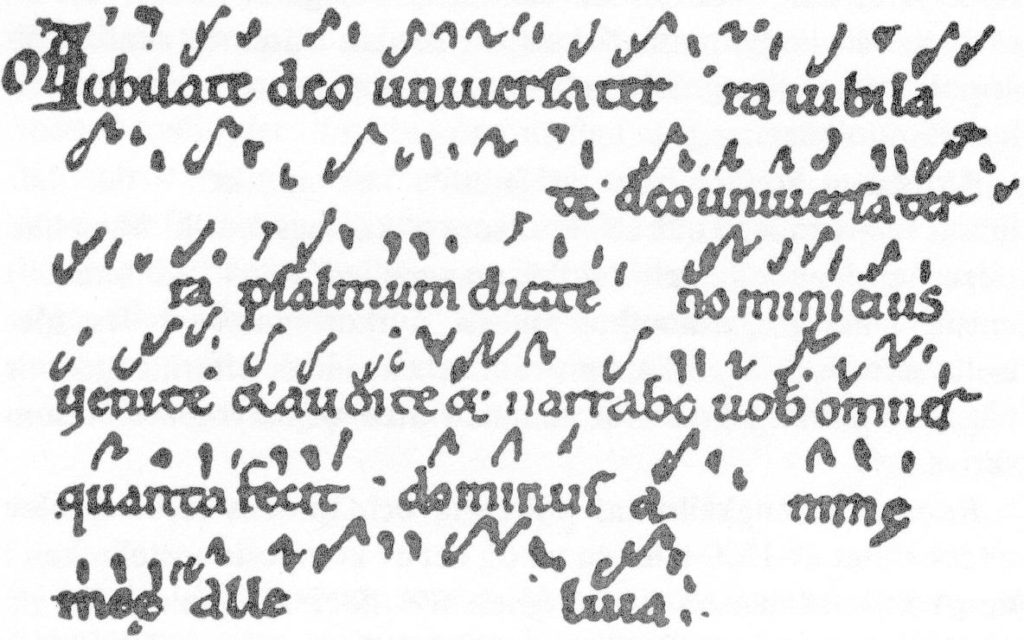 Of Iubilate deo uniuersa ter ra iubila
te deo uniuersa ter
ra psalmum dicite nomini eius
uenite & audite & narrabo uob omnes
quanta fecit dominus a nime
meę alle luia.